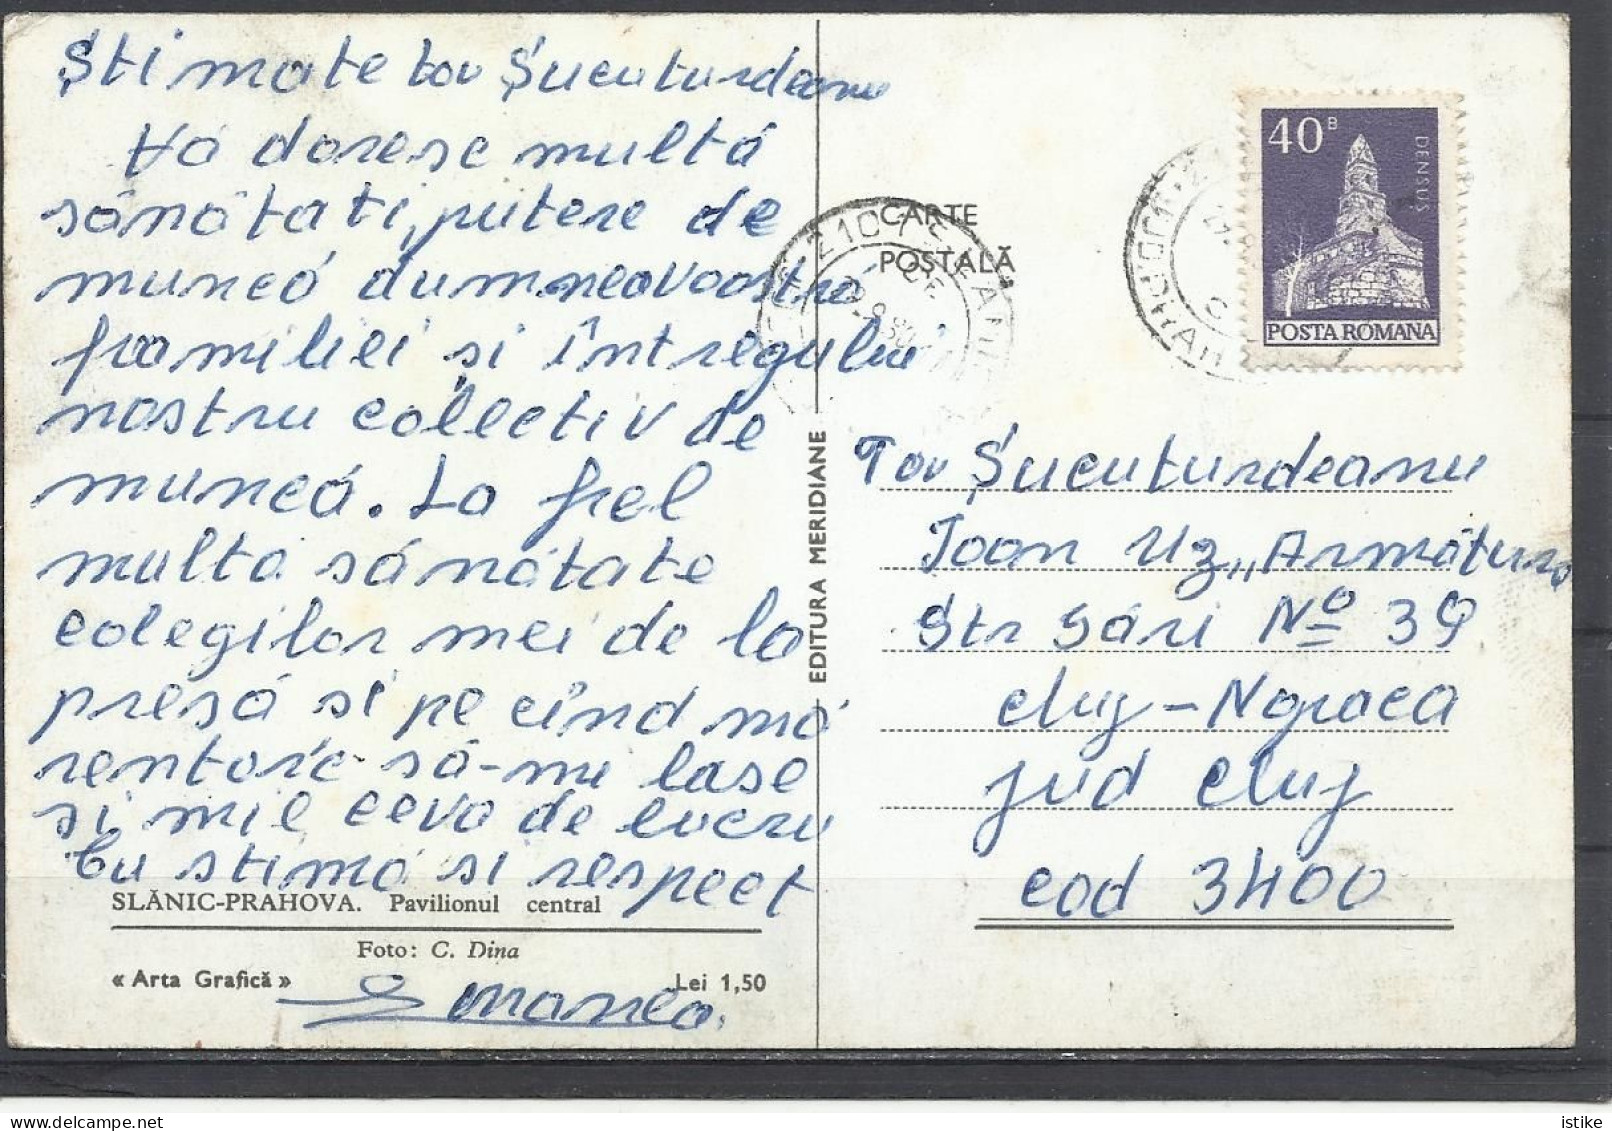 Stimate tov Șucuturdeanu
Vă doresc multă
sănătati, putere de
muncă dumneavoastră
familiei si întregului
nostru colectiv de
muncă. La fel
multa sănătate
colegilor mei de la
presă si pe cînd mă
rentorc să-mi lase
si mie ceva de lucru
Cu stimă si respect
SLĂNIC-PRAHOVA. Pavilionul central
Foto: C. Dina
« Arta Grafică »
Lei 1,50
EDITURA MERIDIANE
CARTE
POSTALĂ
40 B
DENSUS
POSTA ROMANA
Tov Șucuturdeanu
Ioan Uz „Armătura
Str Gării No 39
Cluj-Napoca
jud Cluj
cod 3400
istike